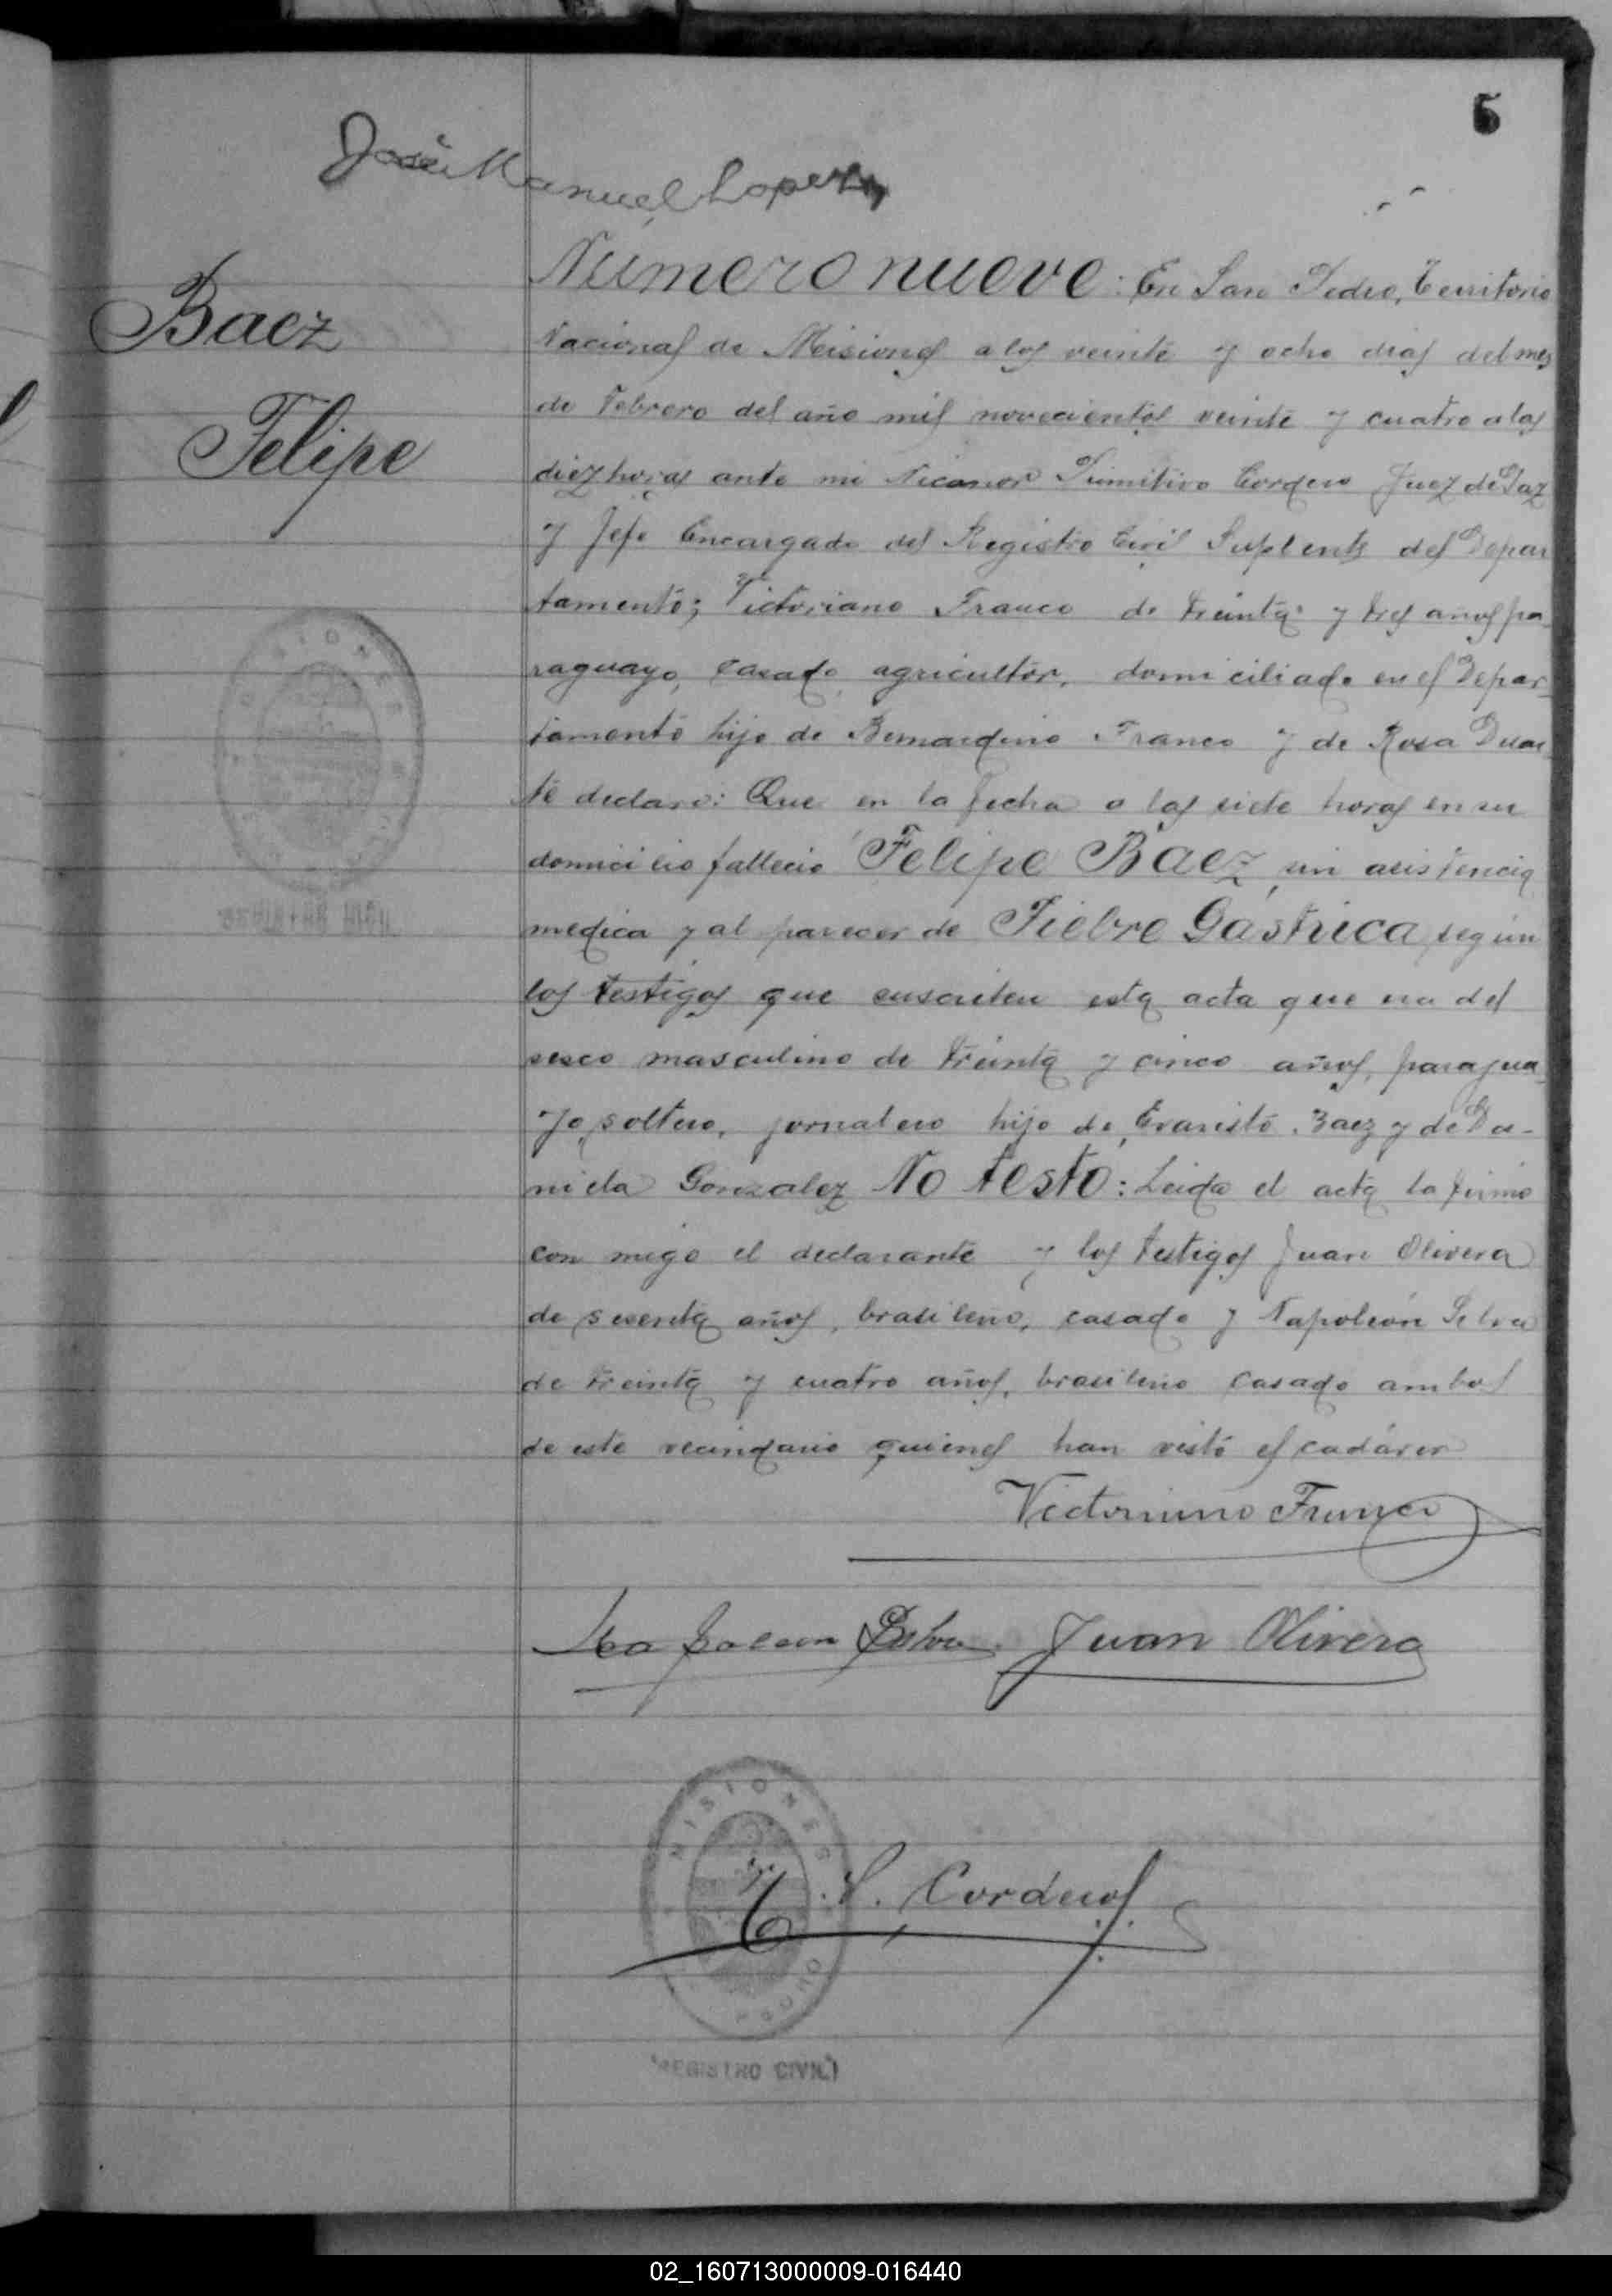 5
José Manuel Lopez
Baez
Felipe
Número nueve: En San Pedro, Territorio
Nacional de Misiones a los veinte y ocho dias del mes
de Febrero del año mil novecientos veinte y cuatro a las
diez horas ante mi Nicanor Primitivo Cordero Juez de Paz
y Jefe Encargado del Registro Civil Suplente del Depar
tamento; Victoriano Franco de treinta y tres años pa-
raguayo, casado, agricultor, domiciliado en el Depar-
tamento hijo de Bernardino Franco y de Rosa Duar
te declaró: Que en la fecha a las siete horas en su
domicilio fallecio Felipe Baez, sin asistencia
medica y al parecer de Fiebre Gástrica según
los testigos que suscriben esta acta que era del
sexo masculino de treinta y cinco años, paragua-
yo, soltero, jornalero hijo de Evaristo Baez y de Da-
niela Gonzalez No testó: Leida el acta la firmó
con migo el declarante y los testigos Juan Olivera
de sesenta años, brasileño, casado y Napoleón Silva
de treinta y cuatro años, brasileño casado ambos
de este vecindario quienes han visto el cadáver
Victoriano Franco
Napoleon Silva Juan Olivera
MISIONES
Cordero
REGISTRO CIVIL
02_160713000009-016440